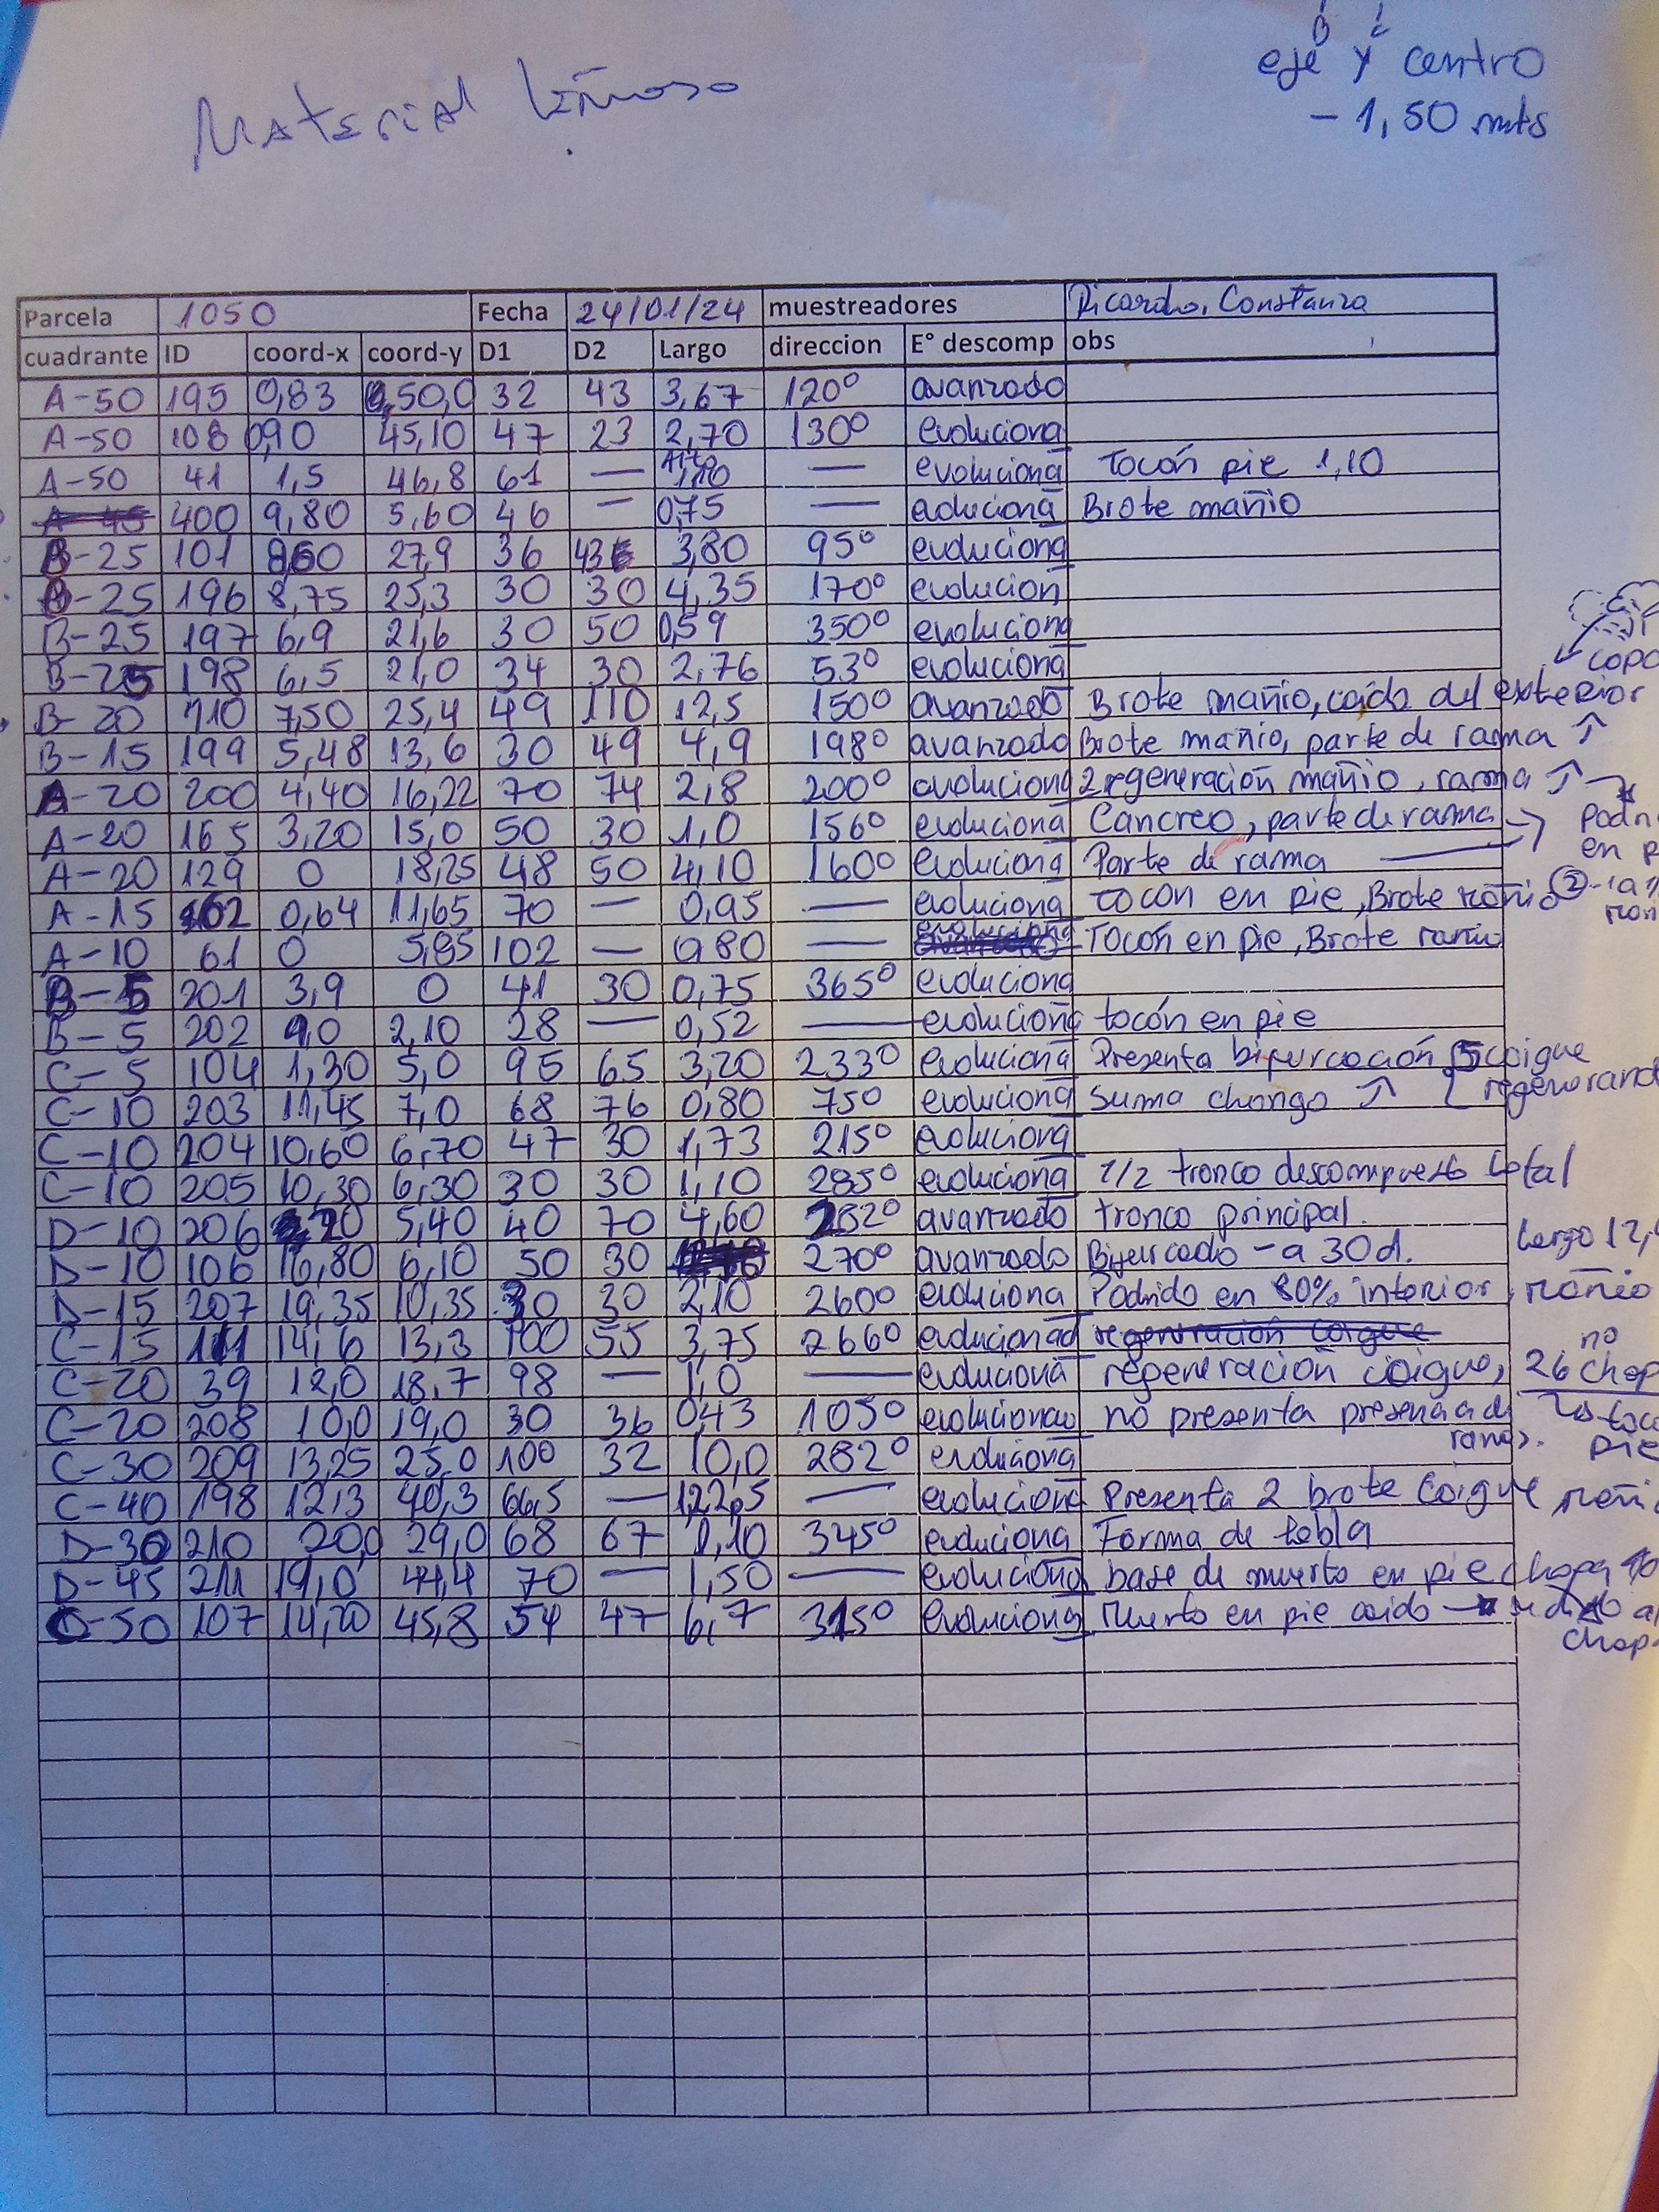 B C
eje y centro
- 1,50 mts
Material Leñoso
Parcela 1050 Fecha 24/01/24 muestreadores Ricardo, Constanza
cuadrante ID coord-x coord-y D1 D2 Largo direccion E° descomp obs
A-50 195 0,83 50,0 32 43 3,67 120° avanzado
A-50 108 0,90 45,10 47 23 2,70 130° evoluciona
A-50 41 1,5 46,8 61 — Alto 1,10 — evoluciona Tocón pie 1,10
A-45 400 9,80 5,60 46 — 0,75 — evoluciona Brote mañio
B-25 101 27,9 36 43 3,80 95° evoluciona
B-25 196 8,75 25,3 30 30 4,35 170° evolucion
B-25 197 6,9 21,6 30 50 0,59 350° evoluciona
B-25 198 6,5 21,0 34 30 2,76 53° evoluciona
copa
B-20 110 7,50 25,4 49 110 12,5 150° avanzado Brote mañio, caido del exterior
B-15 199 5,48 13,6 30 49 4,9 198° avanzado Brote mañio, parte de rama ↑
A-20 200 4,40 16,22 70 74 2,8 200° evoluciona 2 regeneración mañio, rama ↑
A-20 165 3,20 15,0 50 30 1,0 156° evoluciona Cancreo, parte de rama
en p
A-20 129 0 18,25 48 50 4,10 160° evoluciona Parte de rama
A-15 102 0,64 11,65 70 — 0,95 — evoluciona tocon en pie, Brote mañio ②
A-10 61 0 5,85 102 — 0,80 — evoluciona Tocón en pie, Brote
B-5 201 3,9 0 41 30 0,75 365° evoluciona
B-5 202 2,10 28 — 0,52 — evoluciona tocón en pie
C-5 104 1,30 5,0 95 65 3,20 233° evoluciona Presenta bifurcación, 5 coigue
regenerand
C-10 203 11,45 7,0 68 76 0,80 75° evoluciona Suma chongo ↑
C-10 204 10,60 6,70 47 30 1,73 215° evoluciona
C-10 205 10,30 6,30 30 30 1,10 285° evoluciona 1/2 tronco descompuesto total
D-10 206 5,40 40 70 4,60 282° avanzado tronco principal.
Largo 12,
D-10 106 16,80 6,10 50 30 270° avanzado Bifurcado - a 30 d.
D-15 207 19,35 10,35 30 30 2,10 260° evoluciona Podrido en 80% interior, mañio
C-15 111 14,6 13,3 100 55 3,75 266° evolucionad regeneración coigue
no
C-20 39 12,0 18,7 98 — 1,0 — evoluciona regeneración coigue, 26 chop
C-20 208 10,0 19,0 30 36 0,43 105° evolucionao no presenta presencia d
ramas. pie
C-30 209 13,25 25,0 100 32 10,0 282° evoluciona
C-40 198 12,3 40,3 66,5 — 122,5 — evoluciona Presenta 2 brote Coigue mañi
D-30 210 20,0 29,0 68 67 1,10 345° evoluciona Forma de tabla
D-45 211 19,0 44,4 70 — 1,50 — evoluciona base de muerto en pie chopa
C-50 107 14,20 45,8 54 47 6,7 315° evoluciona muerto en pie caido
chop